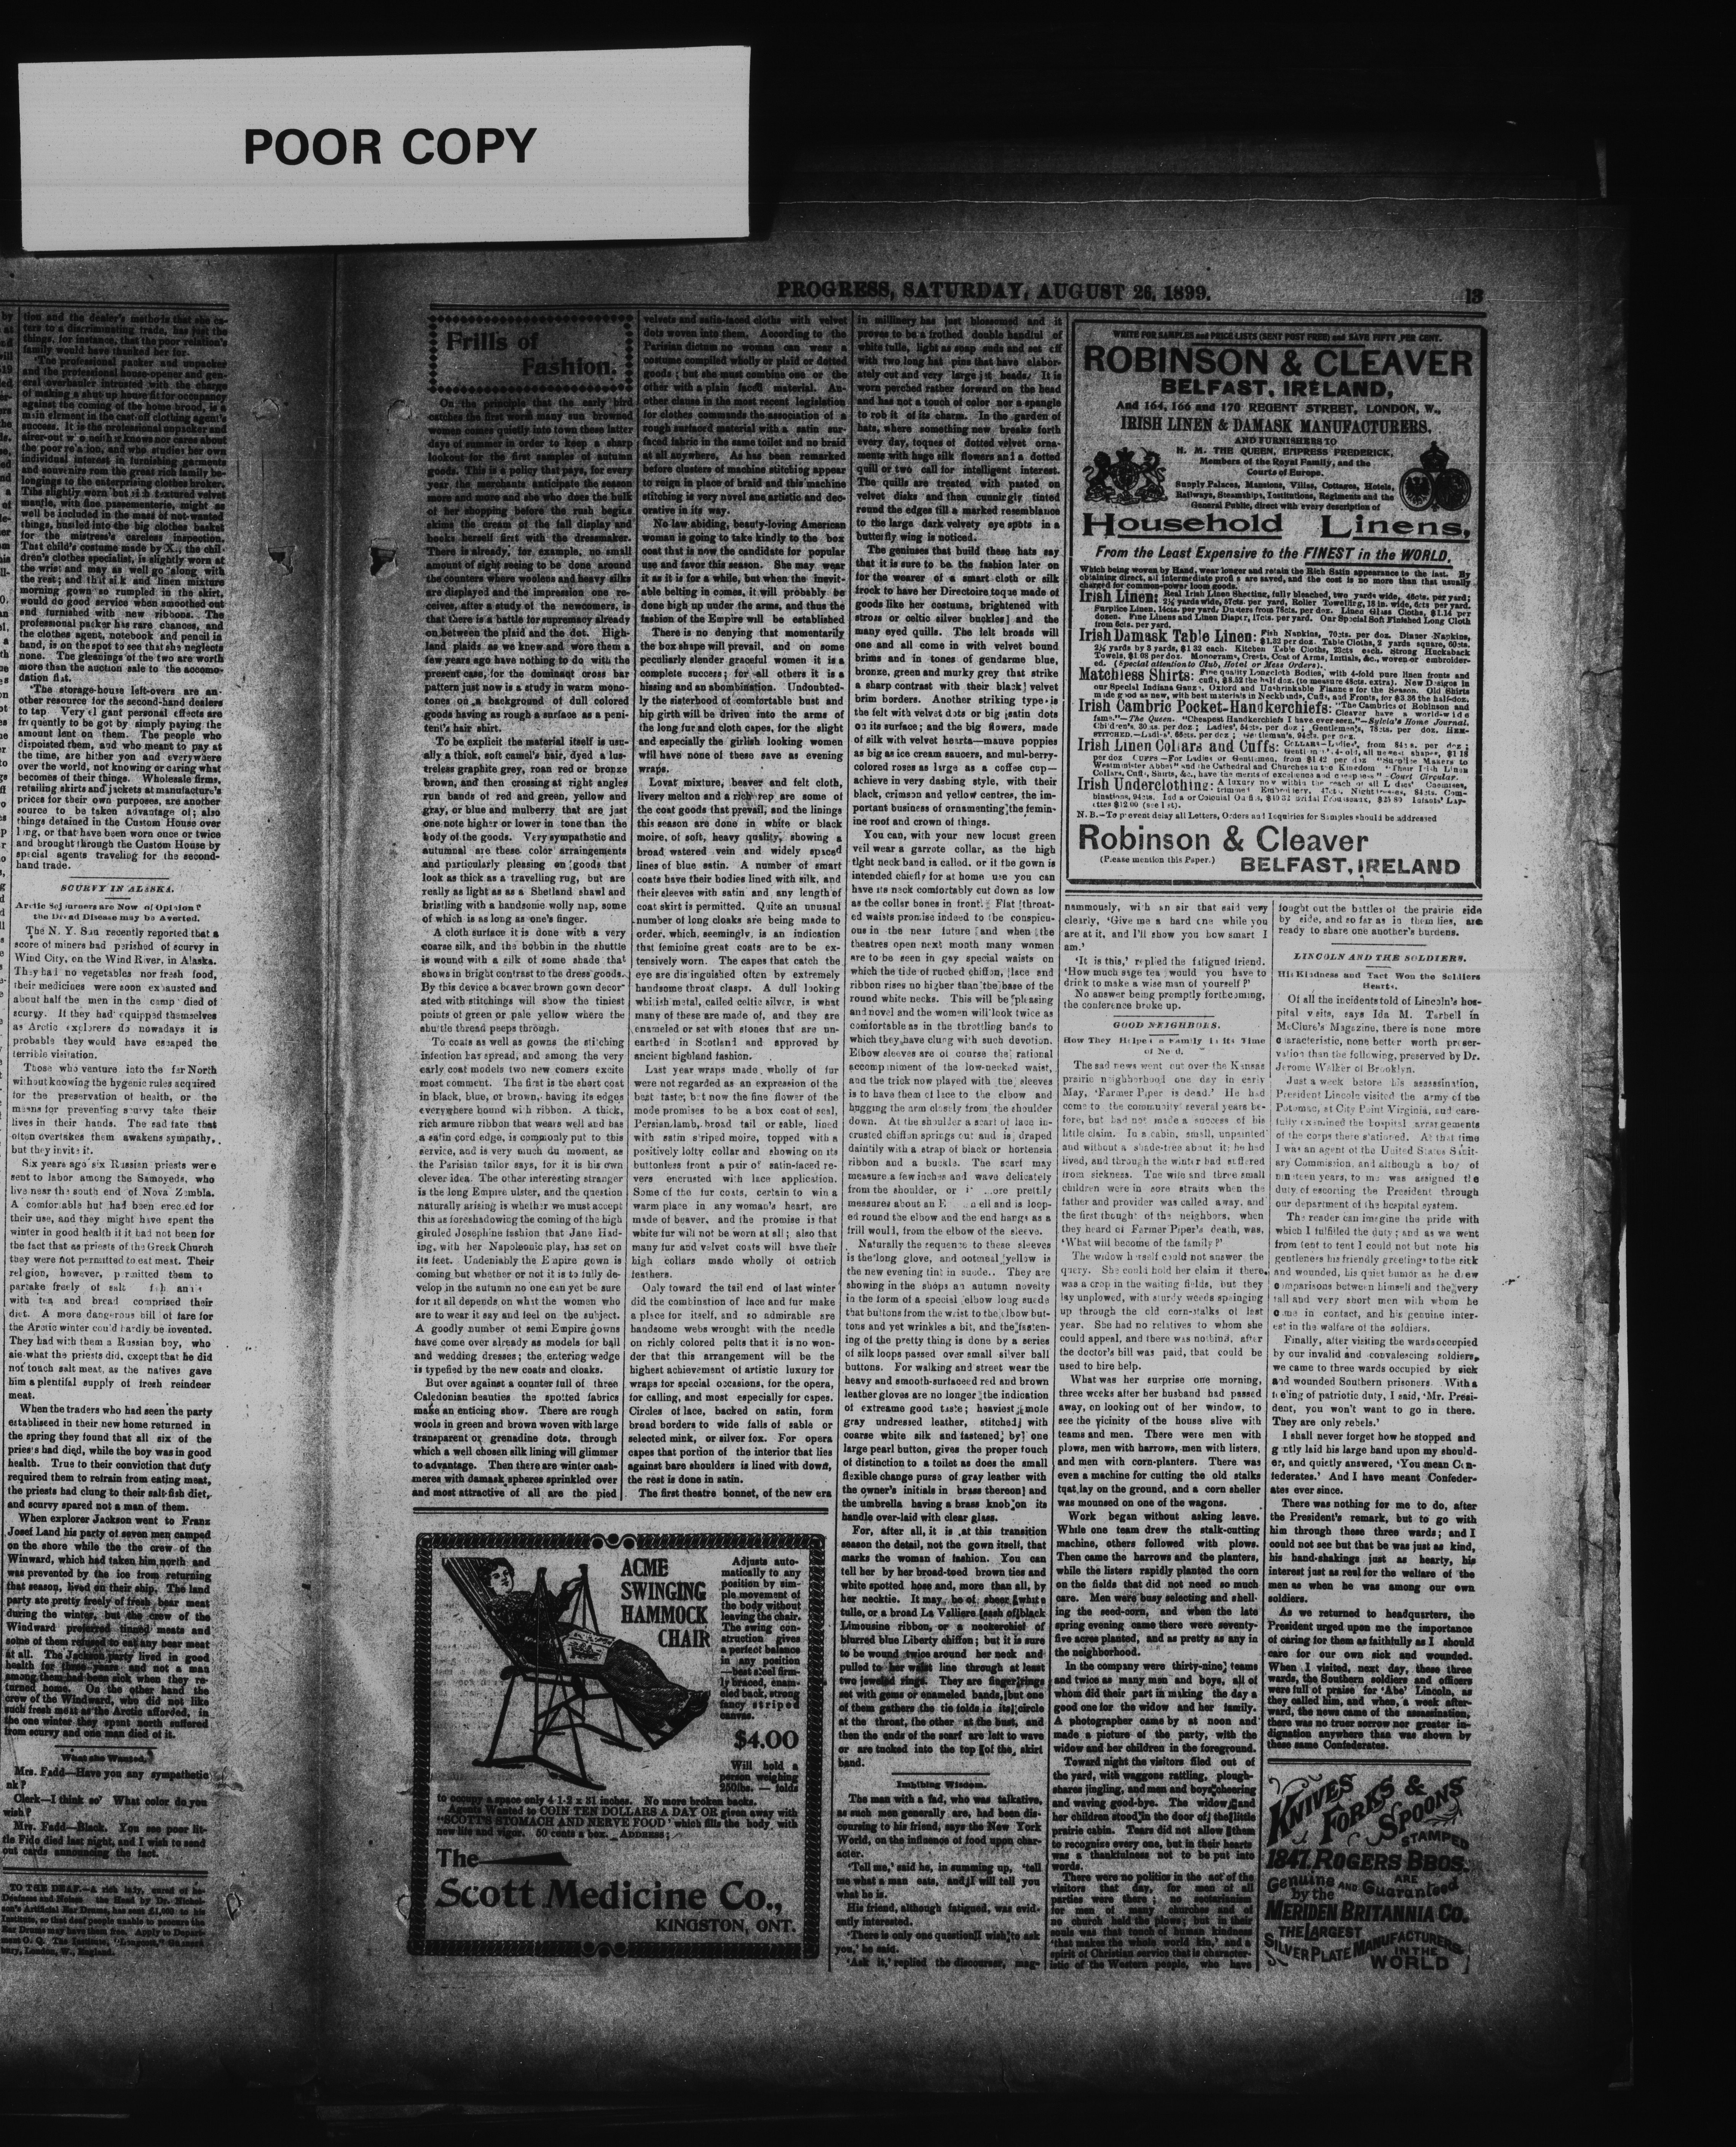 POOR COPY
PROGRESS, SATURDAY, AUGUST 26, 1899.
13
tion and the dealer's methods that she ca-
ters to a discriminating trade, has just the
things, for instance, that the poor relation's
family would have thanked her for.
'The professional packer and unpacker
and the professional house-opener and gen-
eral overhauler intrusted with the charge
of making a shut-up house fit for occupancy
against the coming of the home brood, is a
main element in the cast-off clothing agent's
success. It is the professional unpacker and
airer-out who neither knows nor cares about
the poor relation, and who studies her own
individual interest in furnishing garments
and souvenirs from the great rich family be-
longings to the enterprising clothes broker.
The slightly worn but rich textured velvet
mantle, with fine passementerie, might as
well be included in the mass of not-wanted
things, bustled into the big clothes basket
for the mistress's careless inspection.
That child's costume made by X., the chil-
dren's clothes specialist, is slightly worn at
the wrist and may as well go along with
the rest; and that silk and linen mixture
morning gown so rumpled in the skirt,
would do good service when smoothed out
and furnished with new ribbons. The
professional packer has rare chances, and
the clothes agent, notebook and pencil in
hand, is on the spot to see that she neglects
none. The gleanings of the two are worth
more than the auction sale to the accomo-
dation fist.
'The storage-house left-overs are an-
other resource for the second-hand dealers
to tap. Very elegant personal effects are
frequently to be got by simply paying the
amount lent on them. The people who
dispoisted them, and who meant to pay at
the time, are hither yon and everywhere
over the world, not knowing or caring what
becomes of their things. Wholesale firms,
retailing skirts and jackets at manufacture's
prices for their own purposes, are another
source to be taken advantage of; also
things detained in the Custom House over
long, or that have been worn once or twice
and brought through the Custom House by
special agents traveling for the second-
hand trade.
SCURVY IN ALASKA.
Arctic Sojourners are Now of Opinion?
the Dread Disease may be Averted.
The N. Y. Sun recently reported that a
score of miners had perished of scurvy in
Wind City, on the Wind River, in Alaska.
They had no vegetables nor fresh food,
their medicines were soon exhausted and
about half the men in the camp died of
scurgy. If they had equipped themselves
as Arctic explorers do nowadays it is
probable they would have escaped the
terrible visitation.
Those who venture into the far North
without knowing the hygenic rules acquired
for the preservation of health, or the
means for preventing scurvy take their
lives in their hands. The sad fate that
often overtakes them awakens sympathy,
but they invite it.
Six years ago six Russian priests were
sent to labor among the Samoyeds, who
live near the south end of Nova Zembla.
A comfortable hut had been erected for
their use, and they might have spent the
winter in good health if it had not been for
the fact that as priests of the Greek Church
they were not permitted to eat meat. Their
religion, however, permitted them to
partake freely of salt fish and
with tea and bread comprised their
diet. A more dangerous bill of fare for
the Arctic winter could hardly be invented.
They had with them a Russian boy, who
ate what the priests did, except that he did
not touch salt meat, as the natives gave
him a plentiful supply of fresh reindeer
meat.
When the traders who had seen the party
establised in their new home returned in
the spring they found that all six of the
priests had died, while the boy was in good
health. True to their conviction that duty
required them to refrain from eating meat,
the priests had clung to their salt-fish diet,
and scurvy spared not a man of them.
When explorer Jackson went to Franz
Josef Land his party of seven men camped
on the shore while the the crew of the
Winward, which had taken him north and
was prevented by the ice from returning
that season, lived on their ship. The land
party ate pretty freely of fresh bear meat
during the winter, but the crew of the
Windward preferred tinned meats and
some of them refused to eat any bear meat
at all. The Jackson party lived in good
health for three years and not a man
among them had been sick when they re-
turned home. On the other hand the
crew of the Windward, who did not like
such fresh meat as the Arctic afforded, in
the one winter they spent north suffered
from scurvy and one man died of it.
What she Wanted.
Mrs. Fadd—Have you any sympathetic
ink?
Clerk—I think so? What color do you
wish?
Mrs. Fadd—Black. You see poor lit-
tle Fido died last night, and I wish to send
out cards announcing the fact.
TO THE DEAF.—A rich lady, cured of her
Deafness and Noises in the Head by Dr. Nichol-
son's Artificial Ear Drums, has sent £1,000 to his
Institute, so that deaf people unable to procure the
Ear Drums may have them free. Apply to Depart-
ment O. Q. The Institute, "Longcott," Gunners-
bury, London, W., England.
Frills of
Fashion.
On the principle that the early bird
catches the first worm many sun browned
women comes quietly into town these latter
days of summer in order to keep a sharp
lookout for the first samples of autumn
goods. This is a policy that pays, for every
year, the merchants anticipate the season
more and more and she who does the bulk
of her shopping before the rush begits
skims the cream of the fall display and
books herself first with the dressmaker.
There is already, for example, no small
amount of sight seeing to be done around
the counters where woolens and heavy silks
are displayed and the impression one re-
ceives, after a study of the newcomers, is
that there is a battle for supremacy already
on between the plaid and the dot. High-
land plaids as we knew and wore them a
few years ago have nothing to do with the
present case, for the dominaqt cross bar
pattern just now is a study in warm mono-
tones on a background of dull colored
goods having as rough a surface as a peni-
tent's hair shirt.
To be explicit the material itself is usu-
ally a thick, soft camel's hair, dyed a lus-
treless graphite grey, roan red or bronze
brown, and then crossing at right angles
run bands of red and green, yellow and
gray, or blue and mulberry that are just
one note higher or lower in tone than the
body of the goods. Very sympathetic and
autumnal are these color arraingements
and particularly pleasing on goods that
look as thick as a travelling rug, but are
really as light as as a Shetland shawl and
bristling with a handsome wolly nap, some
of which is as long as one's finger.
A cloth surface it is done with a very
coarse silk, and the bobbin in the shuttle
is wound with a silk of some shade that
shows in bright contrast to the dress goods.
By this device a beaver brown gown decor-
ated with stitchings will show the tiniest
points of green or pale yellow where the
shuttle thread peeps through.
To coats as well as gowns the stitching
infection has spread, and among the very
early coat models two new comers excite
most comment. The first is the short coat
in black, blue, or brown, having its edges
everywhere bound with ribbon. A thick,
rich armure ribbon that wears well and has
a satin cord edge, is commonly put to this
service, and is very much du moment, as
the Parisian tailor says, for it is his own
clever idea. The other interesting stranger
is the long Empire ulster, and the question
naturally arising is whether we must accept
this as foreshadowing the coming of the high
giruled Josephine fashion that Jane Had-
ing, with her Napoleonic play, has set on
its feet. Undeniably the Empire gown is
coming but whether or not it is to fully de-
velop in the autumn no one can yet be sure
for it all depends on what the women who
are to wear it say and feel on the subject.
A goodly number of semi Empire gowns
have come over already as models for ball
and wedding dresses; the entering wedge
is typefied by the new coats and cloaks.
But over against a counter full of three
Caledonian beauties the spotted fabrics
make an enticing show. There are rough
wools in green and brown woven with large
transparent or grenadine dots. through
which a well chosen silk lining will glimmer
to advantage. Then there are winter cash-
meres with damask spheres sprinkled over
and most attractive of all are the pied
velvets and satin-faced cloths with velvet
dots woven into them. According to the
Parisian dictum no woman can wear a
costume compiled wholly or plaid or dotted
goods; but she must combine one or the
other with a plain faced material. An-
other clause in the most recent legislation
for clothes commands the association of a
rough surfaced material with a satin sur-
faced fabric in the same toilet and no braid
at all anywhere. As has been remarked
before clusters of machine stitching appear
to reign in place of braid and this machine
stitching is very novel ane artistic and dec-
orative in its way.
No law abiding, beauty-loving American
woman is going to take kindly to the box
coat that is now the candidate for popular
use and favor this season. She may wear
it as it is for a while, but when the inevit-
able belting in comes, it will probably be
done high up under the arms, and thus the
fashion of the Empire will be established
There is no denying that momentarily
the box shape will prevail, and on some
peculiarly slender graceful women it is a
complete success; for all others it is a
hissing and an abombination. Undoubted-
ly the sisterhood of comfortable bust and
hip girth will be driven into the arms of
the long fur and cloth capes, for the slight
and especially the girlish looking women
will have none of these save as evening
wraps.
Lovat mixture, beaver and felt cloth,
livery melton and a rich rep are some of
the coat goods that prevail, and the linings
this season are done in white or black
moire, of soft, heavy quality, showing a
broad watered vein and widely spaced
lines of blue satin. A number of smart
coats have their bodies lined with silk, and
their sleeves with satin and any length of
coat skirt is permitted. Quite an unusual
number of long cloaks are being made to
order, which, seemingly, is an indication
that feminine great coats are to be ex-
tensively worn. The capes that catch the
eye are distinguished often by extremely
handsome throat clasps. A dull looking
whitish metal, called celtic silver, is what
many of these are made of, and they are
enameled or set with stones that are un-
earthed in Scotland and approved by
ancient highland fashion.
Last year wraps made wholly of fur
were not regarded as an expression of the
best taste; but now the fine flower of the
mode promises to be a box coat of seal,
Persian lamb, broad tail or sable, lined
with satin striped moire, topped with a
positively lofty collar and showing on its
buttonless front a pair of satin-faced re-
vers encrusted with lace application.
Some of the fur costs, certain to win a
warm place in any woman's heart, are
made of beaver, and the promise is that
white fur will not be worn at all; also that
many fur and velvet coats will have their
high collars made wholly of ostrich
feathers.
Only toward the tail end of last winter
did the combination of lace and fur make
a place for itself, and so admirable are
handsome webs wrought with the needle
on richly colored pelts that it is no won-
der that this arrangement will be the
highest achievement of artistic luxury for
wraps for special occasions, for the opera,
for calling, and most especially for capes.
Circles of lace, backed on satin, form
broad borders to wide falls of sable or
selected mink, or silver fox. For opera
capes that portion of the interior that lies
against bare shoulders is lined with down,
the rest is done in satin.
The first theatre bonnet, of the new era
in millinery has just blossomed and it
proves to be a frothed double handful of
white tulle, light as soap suds and set off
with two long hat pins that have elabor-
ately cut and very large jet heads. It is
worn perched rather forward on the head
and has not a touch of color nor a spangle
to rob it of its charm. In the garden of
hats, where something new breaks forth
every day, toques of dotted velvet orna-
ments with huge silk flowers and a dotted
quill or two call for intelligent interest.
The quills are treated with pasted on
velvet disks and then cunningly tinted
round the edges till a marked resemblance
to the large dark velvety eye spots in a
butterfly wing is noticed.
The geniuses that build these hats say
that it is sure to be the fashion later on
for the wearer of a smart cloth or silk
frock to have her Directoire toque made of
goods like her costume, brightened with
stross or celtic silver buckles and the
many eyed quills. The felt broads will
one and all come in with velvet bound
brims and in tones of gendarme blue,
bronze, green and murky grey that strike
a sharp contrast with their black velvet
brim borders. Another striking type is
the felt with velvet dots or big satin dots
on its surface; and the big flowers, made
of silk with velvet hearts—mauve poppies
as big as ice cream saucers, and mul-berry-
colored roses as large as a coffee cup—
achieve in very dashing style, with their
black, crimson and yellow centres, the im-
portant business of ornamenting the femin-
ine root and crown of things.
You can, with your new locust green
veil wear a garrote collar, as the high
tight neck band is called, or if the gown is
intended chiefly for at home use you can
have its neck comfortably cut down as low
as the collar bones in front. Flat throat-
ed waists promise indeed to be conspicu-
ous in the near future and when the
theatres open next month many women
are to be seen in gay special waists on
which the tide of ruched chiffon, lace and
ribbon rises no higher than the base of the
round white necks. This will be pleasing
and novel and the women will look twice as
comfortable as in the throttling bands to
which they have clung with such devotion.
Elbow sleeves are of course the rational
accompniment of the low-necked waist,
and the trick now played with the sleeves
is to have them of lace to the elbow and
hugging the arm closely from the shoulder
down. At the shoulder a scarf of lace in-
crusted chiffon springs out and is draped
daintily with a strap of black or hortensia
ribbon and a buckle. The scarf may
measure a few inches and wave delicately
from the shoulder, or ...ore prettily
measures about an E ell and is loop-
ed round the elbow and the end hangs as a
frill would, from the elbow of the sleeve.
Naturally the requence to these sleeves
is the long glove, and ootmeal yellow is
the new evening tint in suede.. They are
showing in the shops an autumn novelty
in the form of a special elbow long suede
that buttons from the wrist to the elbow but-
tons and yet wrinkles a bit, and the fasten-
ing of the pretty thing is done by a series
of silk loops passed over small silver ball
buttons. For walking and street wear the
heavy and smooth-surfaceed red and brown
leather gloves are no longer the indication
of extreame good taste; heaviest mole
gray undressed leather, stitched with
coarse white silk and fastened by one
large pearl button, gives the proper touch
of distinction to a toilet as does the small
flexible change purse of gray leather with
the owner's initials in brass thereon and
the umbrella having a brass knob on its
handle over-laid with clear glass.
For, after all, it is at this transition
season the detail, not the gown itself, that
marks the woman of fashion. You can
tell her by her broad-toed brown ties and
white spotted hose and, more than all, by
her necktie. It may be of sheer white
tulle, or a broad La Valliere sash of black
Limousine ribbon, or a neckerchief of
blurred blue Liberty chiffon; but it is sure
to be wound twice around her neck and
pulled to her waist line through at least
two jeweled rings. They are finger rings
set with gems or enameled bands, but one
of them gathers the tie folds in its circle
at the throat, the other at the bust, and
then the ends of the scarf are left to wave
or are tucked into the top of the skirt
band.
Imbibing Wisdom.
The man with a fad, who was talkative,
as such men generally are, had been dis-
coursing to his friend, says the New York
World, on the influence of food upon char-
acter.
'Tell me,' said he, in summing up, 'tell
me what a man eats, and I will tell you
what he is.
His friend, although fatigued, was evid-
ently interested.
'There is only one question I wish to ask
you,' he said.
'Ask it,' replied the discourser, mag-
nammously, with an air that said very
clearly, 'Give me a hard one while you
are at it, and I'll show you how smart I
am.'
'It is this,' replied the fatigued friend.
'How much sage tea would you have to
drink to make a wise man of yourself?'
No answer being promptly forthcoming,
the conference broke up.
GOOD NEIGHBORS.
How They Helped a Family in its Time
of Need.
The sad news went out over the Kansas
prairie neighborhood one day in early
May, 'Farmer Piper is dead.' He had
come to the community several years be-
fore, but had not made a success of his
little claim. In a cabin, small, unpainted
and without a shade-tree about it; he had
lived, and through the winter had suffered
from sickness. The wife and three small
children were in sore straits when the
father and provider was called away, and
the first thought of the neighbors, when
they heard of Farmer Piper's death, was,
'What will become of the family?'
The widow herself could not answer the
query. She could hold her claim it there
was a crop in the waiting fields, but they
lay unplowed, with sturdy weeds spinging
up through the old corn-stalks of last
year. She had no relatives to whom she
could appeal, and there was nothing, after
the doctor's bill was paid, that could be
used to hire help.
What was her surprise one morning,
three weeks after her husband had passed
away, on looking out of her window, to
see the vicinity of the house alive with
teams and men. There were men with
plows, men with harrows, men with listers,
and men with corn-planters. There was
even a machine for cutting the old stalks
tqat lay on the ground, and a corn sheller
was mounsed on one of the wagons.
Work began without asking leave.
While one team drew the stalk-cutting
machine, others followed with plows.
Then came the harrows and the planters,
while the listers rapidly planted the corn
on the fields that did not need so much
care. Men were busy selecting and shell-
ing the seed-corn, and when the late
spring evening came there were seventy-
five acres planted, and as pretty as any in
the neighborhood.
In the company were thirty-nine teams
and twice as many men and boys, all of
whom did their part in making the day a
good one for the widow and her family.
A photographer came by at noon and
made a picture of the party, with the
widow and her children in the foreground.
Toward night the visitors filed out of
the yard, with waggons rattling, plough-
shares jingling, and men and boys cheering
and waving good-bye. The widow and
her children stood in the door of the little
prairie cabin. Tears did not allow them
to recognize every one, but in their hearts
was a thankfulness not to be put into
words.
There were no politics in the act of the
visitors that day, for men of all
parties were there; no sectarianism
for men of many churches and of
no church held the plows; but in their
souls was that touch of human kindness
'that makes the whole world kin,' and a
spirit of Christian service that is character-
istic of the Western people, who have
fought out the battles of the prairie side
by side, and so far as in them lies, are
ready to share one another's burdens.
LINCOLN AND THE SOLDIERS.
His Kindness and Tact Won the Soldiers
Hearts.
Of all the incidents told of Lincoln's hos-
pital visits, says Ida M. Tarbell in
McClure's Magazine, there is none more
characteristic, none better worth preser-
vation than the following, preserved by Dr.
Jerome Walker of Brooklyn.
Just a week before his assassination,
President Lincole visited the army of the
Potomac, at City Point Virginia, and care-
fully examined the hospital arrangements
of the corps there stationed. At that time
I was an agent of the United States Sanit-
ary Commission, and although a boy of
nineteen years, to me was assigned the
duty of escorting the President through
our department of the hospital system.
The reader can imagine the pride with
which I fulfilled the duty; and as we went
from tent to tent I could not but note his
gentleness his friendly greetings to the sick
and wounded, his quiet humor as he drew
comparisons between himself and the very
tall and very short men with whom he
came in contact, and his genuine inter-
est in the welfare of the soldiers.
Finally, after visiting the wards occupied
by our invalid and convalescing soldiers,
we came to three wards occupied by sick
and wounded Southern prisoners. With a
feeling of patriotic duty, I said, 'Mr. Presi-
dent, you won't want to go in there.
They are only rebels.'
I shall never forget how he stopped and
gently laid his large hand upon my should-
er, and quietly answered, 'You mean Con-
federates.' And I have meant Confeder-
ates ever since.
There was nothing for me to do, after
the President's remark, but to go with
him through these three wards; and I
could not see but that he was just as kind,
his hand-shakings just as hearty, his
interest just as real for the welfare of the
men as when he was among our own
soldiers.
As we returned to headquarters, the
President urged upon me the importance
of caring for them as faithfully as I should
care for our own sick and wounded.
When I visited, next day, these three
wards, the Southern soldiers and officers
were full of praise for 'Abe' Lincoln, as
they called him, and when, a week after-
ward, the news came of the assassination,
there was no truer sorrow nor greater in-
dignation anywhere than was shown by
these same Confederates.
WRITE FOR SAMPLES and PRICE LISTS (SENT POST FREE) and SAVE FIFTY PER CENT.
ROBINSON & CLEAVER
BELFAST, IRELAND,
And 164, 166 and 170 REGENT STREET, LONDON, W.,
IRISH LINEN & DAMASK MANUFACTURERS,
AND FURNISHERS TO
H. M. THE QUEEN, EMPRESS FREDERICK,
Members of the Royal Family, and the
Courts of Europe.
Supply Palaces, Mansions, Villas, Cottages, Hotels,
Railways, Steamships, Institutions, Regiments and the
General Public, direct with every description of
Household Linens,
From the Least Expensive to the FINEST in the WORLD,
Which being woven by Hand, wear longer and retain the Rich Satin appearance to the last. By
obtaining direct, all intermediate profits are saved, and the cost is no more than that usually
charged for common-power loom goods.
Irish Linen: Real Irish Linen Sheeting, fully bleached, two yards wide, 46cts. per yard;
2½ yards wide, 57cts. per yard, Roller Towelling, 18 in. wide, 6cts. per yard.
Surplice Linen, 14cts. per yard. Dusters from 78cts. per doz. Linen Glass Cloths, $1.14 per
dozen. Fine Linens and Linen Diaper, 17cts. per yard. Our Special Soft Finished Long Cloth
from 6cts. per yard.
Irish Damask Table Linen: Fish Napkins, 70cts. per doz. Dinner Napkins,
$1.32 per doz. Table Cloths, 2 yards square, 60cts.
2½ yards by 3 yards, $1 32 each. Kitchen Table Cloths, 23cts each. Strong Huckaback
Towels, $1 08 per doz. Monograms, Crests, Coat of Arms, Initials, &c., woven or embroider-
ed. (Special attention to Club, Hotel or Mess Orders).
Matchless Shirts: Fine quality Longcloth Bodies, with 4-fold pure linen fronts and
cuffs, $8.52 the half doz. (to measure 48cts. extra). New Designs in
our Special Indiana Gauze, Oxford and Unshrinkable Flannels for the Season. Old Shirts
made good as new, with best materials in Neckbands, Cuffs, and Fronts, for $3.36 the half-doz.
Irish Cambric Pocket-Handkerchiefs: "The Cambrics of Robinson and
Cleaver have a world-wide
fame."—The Queen. "Cheapest Handkerchiefs I have ever seen."—Sylvia's Home Journal.
Children's, 30cts. per doz; Ladies', 54cts. per doz; Gentlemen's, 78cts. per doz. HEM-
STITCHED.—Ladies', 66cts. per doz; Gentleman's, 94cts. per doz.
Irish Linen Collars and Cuffs: COLLARS—Ladies', from 84cts. per doz;
Gentlemen's, 4-fold, all newest shapes, $1 18
per doz CUFFS—For Ladies or Gentlemen, from $1.42 per doz "Surplice Makers to
Westminster Abbey" and the Cathedral and Churches in the Kingdom "Their Irish Linen
Collars, Cuffs, Shirts, &c., have the merits of excellence and cheapness"—Court Circular.
Irish Underclothing: A luxury now within the reach of all Ladies' Chemises,
trimmed Embroidery, 47cts. Nightdresses, 84cts. Com-
binations, 94cts. India or Colonial Outfits, $10 32 Bridal Trousseaux, $25 80 Infants' Lay-
ettes $12 00 (see list).
N. B.—To prevent delay all Letters, Orders and Inquiries for Samples should be addressed
Robinson & Cleaver
(Please mention this Paper.)
BELFAST, IRELAND
ACME
SWINGING
HAMMOCK
CHAIR
Adjusts auto-
matically to any
position by sim-
ple movement of
the body without
leaving the chair.
The swing con-
struction gives
a perfect balance
in any position
—best steel firm-
ly braced, enam-
eled back, strong
fancy striped
canvas.
$4.00
Will hold a
person weighing
250lbs. — folds
to occupy a space only 4 1-2 x 31 inches. No more broken backs.
Agents Wanted to COIN TEN DOLLARS A DAY OR given away with
"SCOTT'S STOMACH AND NERVE FOOD' which fills the body with
new life and vigor. 50 cents a box. ADDRESS;
The
Scott Medicine Co.,
KINGSTON, ONT.
KNIVES
FORKS &
SPOONS
STAMPED
1847. ROGERS BROS.
ARE
Genuine AND Guaranteed
by the
MERIDEN BRITANNIA CO.
THE LARGEST
SILVER PLATE MANUFACTURERS
IN THE
WORLD